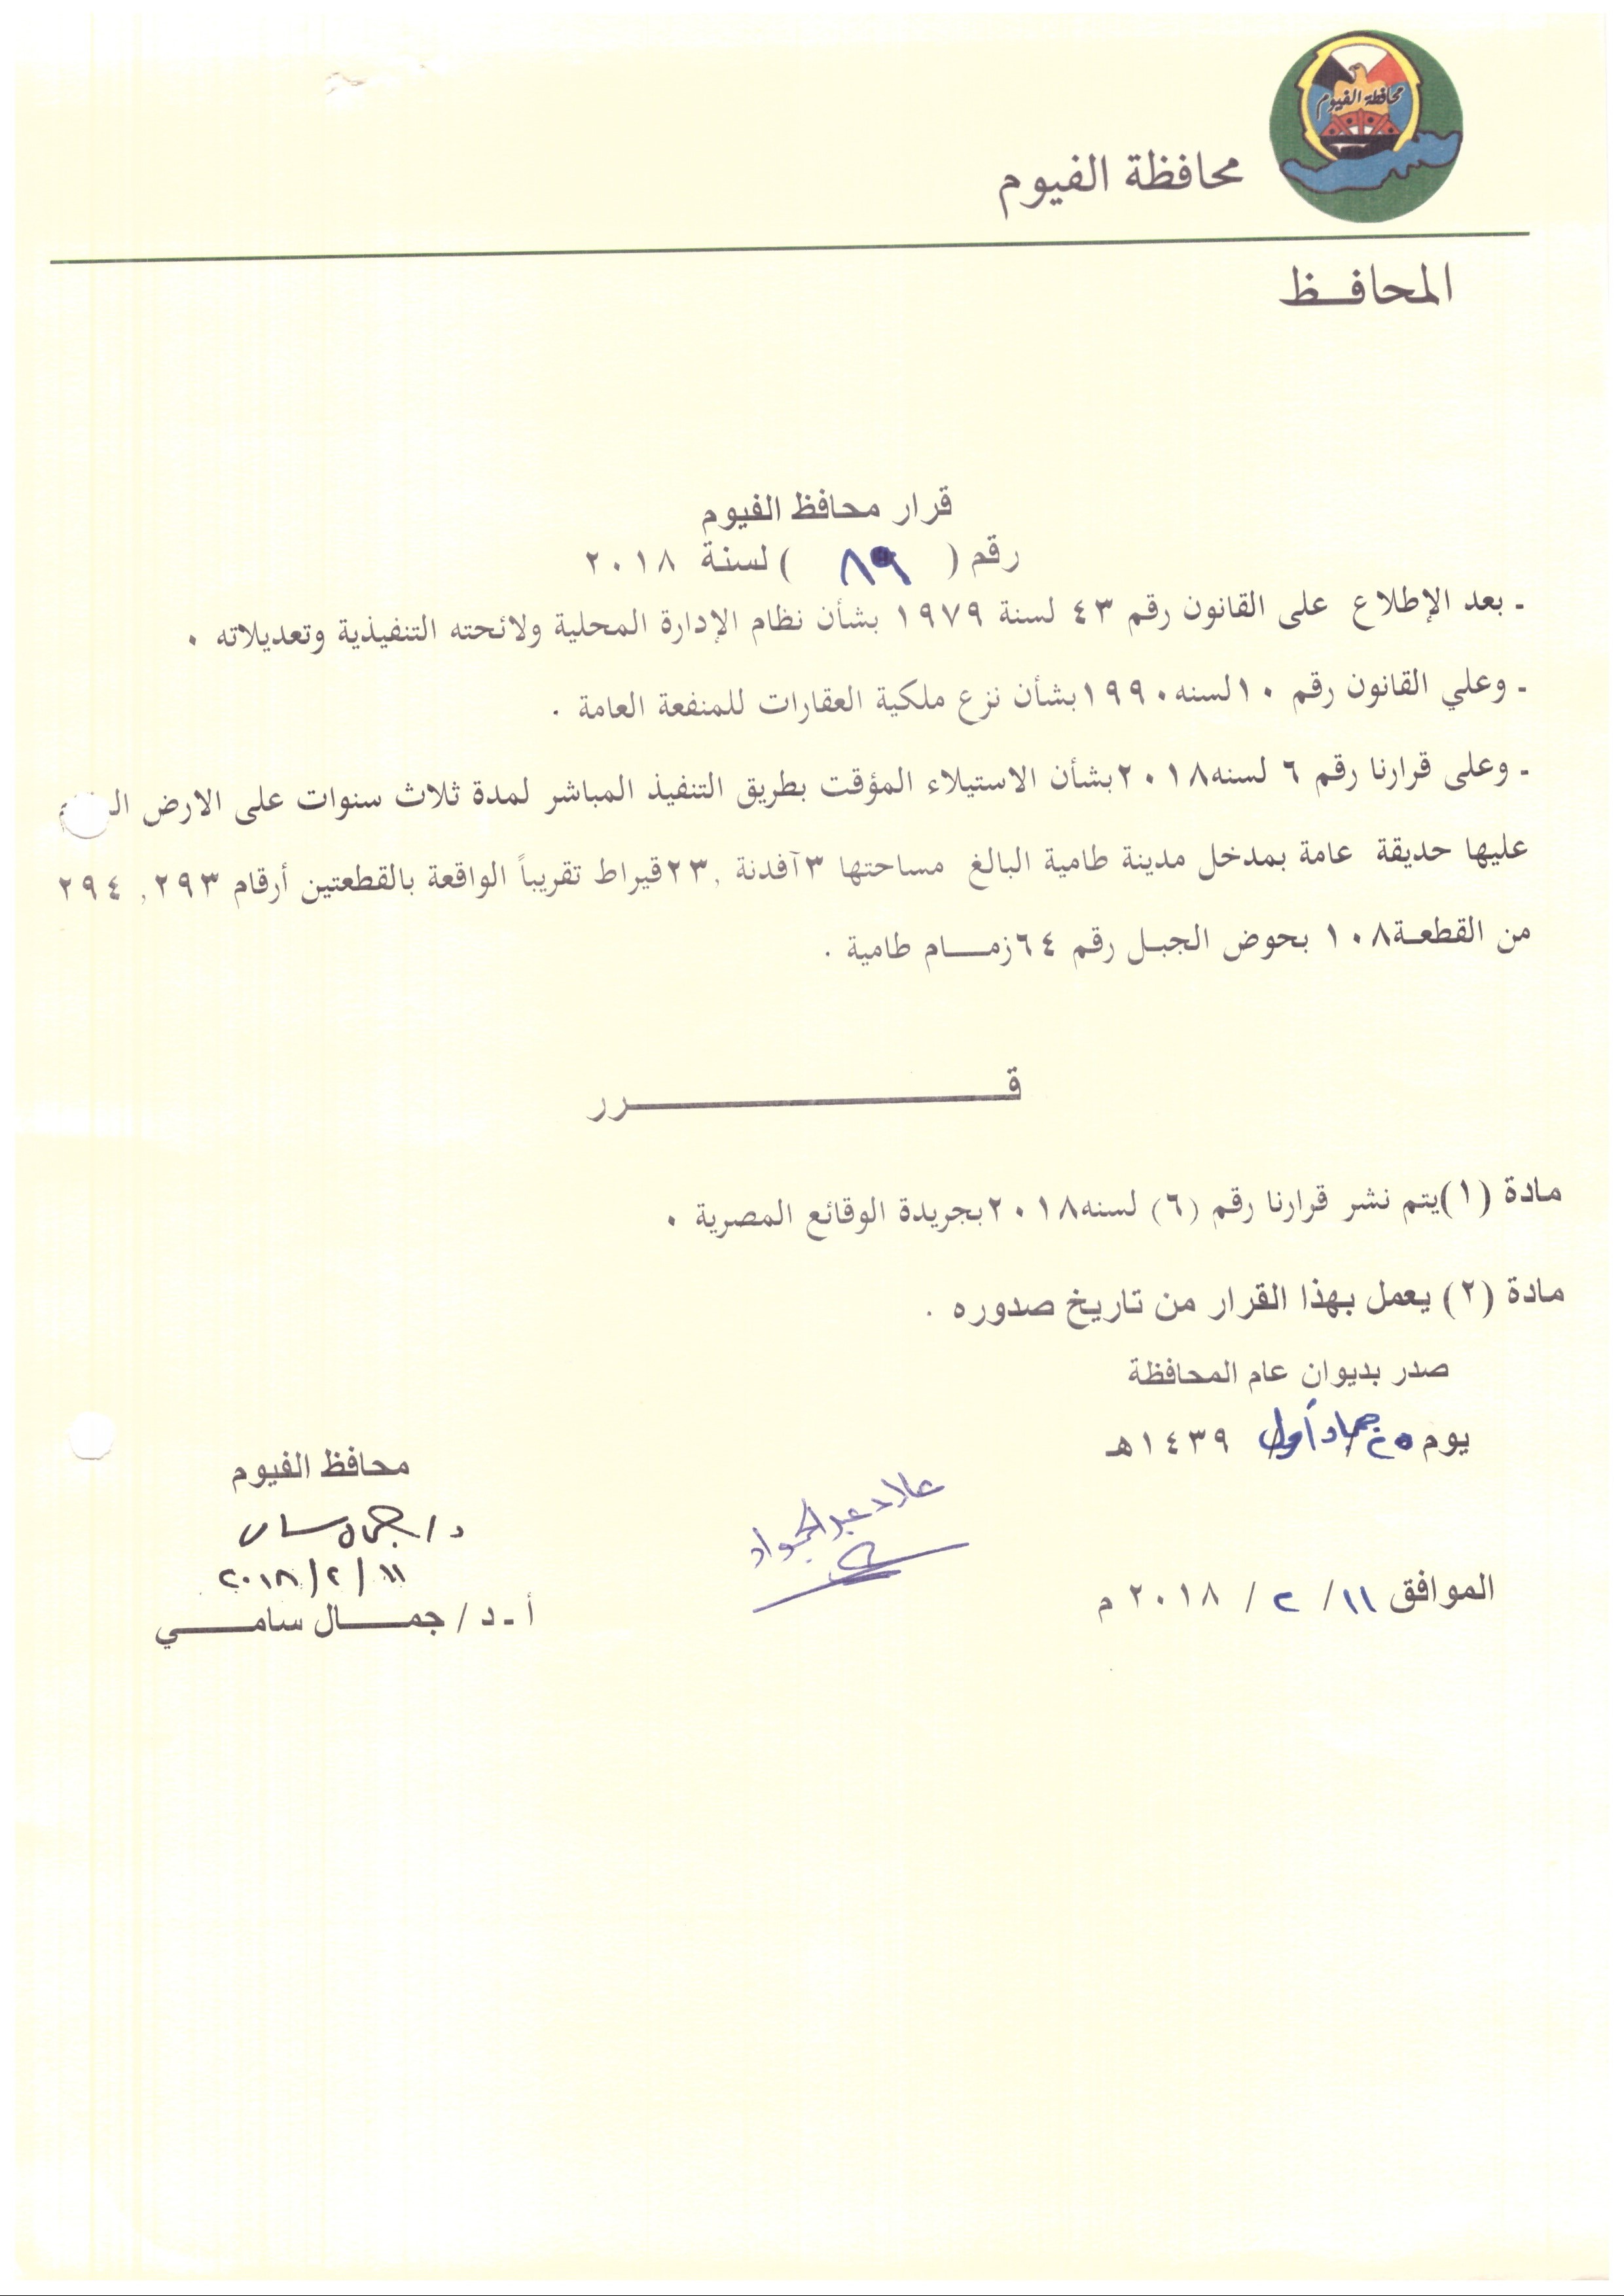 محافظة الفيوم
محافظة الفيوم
المحافــظ
قرار محافظ الفيوم
رقم ( ٨٩ ) لسنة ٢٠١٨
ـ بعد الإطلاع على القانون رقم ٤٣ لسنة ١٩٧٩ بشأن نظام الإدارة المحلية ولائحته التنفيذية وتعديلاته ٠
ـ وعلي القانون رقم ١٠لسنه١٩٩٠بشأن نزع ملكية العقارات للمنفعة العامة ٠
ـ وعلى قرارنا رقم ٦ لسنه٢٠١٨بشأن الاستيلاء المؤقت بطريق التنفيذ المباشر لمدة ثلاث سنوات على الارض
عليها حديقة عامة بمدخل مدينة طامية البالغ مساحتها ٣آفدنة ,٢٣قيراط تقريباً الواقعة بالقطعتين أرقام ٢٩٣, ٢٩٤
من القطعـة١٠٨ بحوض الجبـل رقم ٦٤زمـــام طامية ٠
قــــــــــــــــرر
مادة (١)يتم نشر قرارنا رقم (٦) لسنه٢٠١٨بجريدة الوقائع المصرية ٠
مادة (٢) يعمل بهذا القرار من تاريخ صدوره ٠
صدر بديوان عام المحافظة
يوم ٢٥ جماد أول ١٤٣٩هـ
الموافق ١١/ ٢ / ٢٠١٨ م
علاء عبد الجواد
محافظ الفيوم
د/ جمال سامى
١١/ ٢/ ٢٠١٨
أ ـ د / جمـــــال سامـــــــي